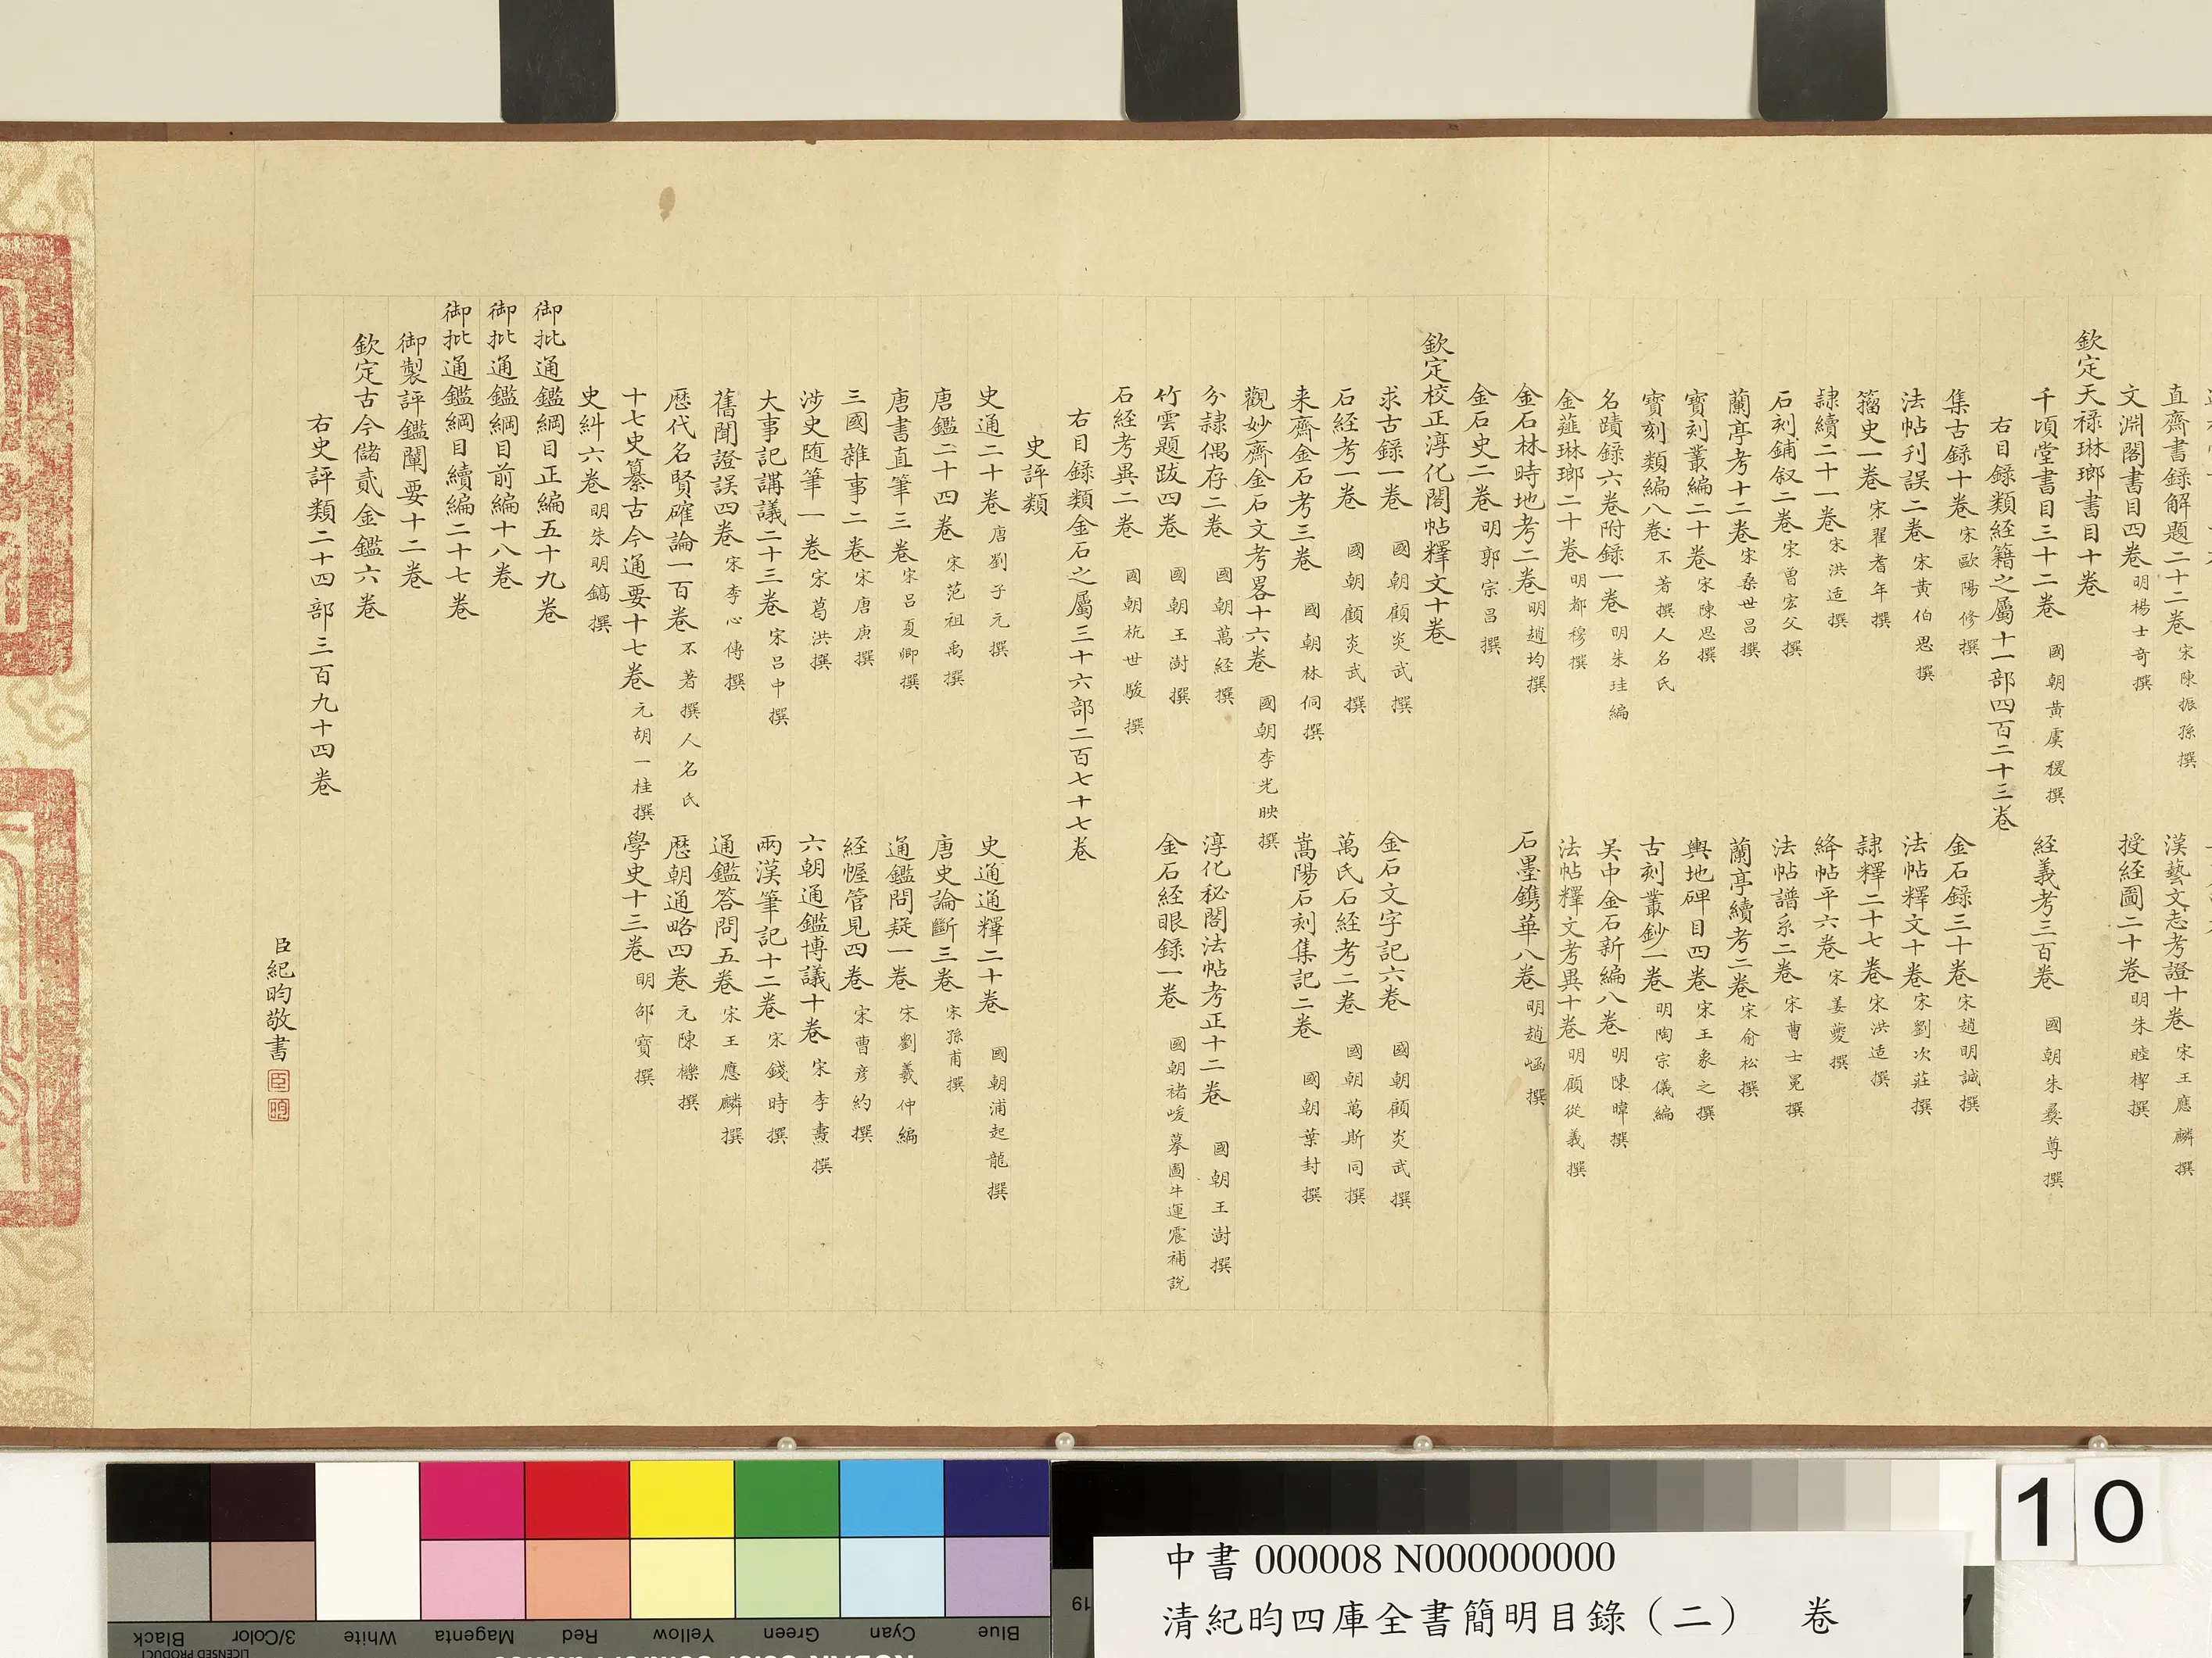 直齋書錄解題二十二卷 宋陳振孫撰 漢藝文志考證十卷 宋王應麟撰
文淵閣書目四卷 明楊士奇撰 授經圖二十卷 明朱睦㮮撰
欽定天祿琳瑯書目十卷
千頃堂書目三十二卷 國朝黃虞稷撰 經義考三百卷 國朝朱彝尊撰
右目錄類經籍之屬十一部四百二十三卷
集古錄十卷 宋歐陽修撰 金石錄三十卷 宋趙明誠撰
法帖刊誤二卷 宋黃伯思撰 法帖釋文十卷 宋劉次莊撰
籀史一卷 宋翟耆年撰 隸釋二十七卷 宋洪适撰
隸續二十一卷 宋洪适撰 絳帖平六卷 宋姜夔撰
石刻鋪叙二卷 宋曾宏父撰 法帖譜系二卷 宋曹士冕撰
蘭亭考十二卷 宋桑世昌撰 蘭亭續考二卷 宋俞松撰
寶刻叢編二十卷 宋陳思撰 輿地碑目四卷 宋王象之撰
寶刻類編八卷 不著撰人名氏 古刻叢鈔一卷 明陶宗儀編
名蹟錄六卷附錄一卷 明朱珪編 吳中金石新編八卷 明陳暐撰
金薤琳瑯二十卷 明都穆撰 法帖釋文考異十卷 明顧從義撰
金石林時地考二卷 明趙均撰 石墨鐫華八卷 明趙崡撰
金石史二卷 明郭宗昌撰
欽定校正淳化閣帖釋文十卷
求古錄一卷 國朝顧炎武撰 金石文字記六卷 國朝顧炎武撰
石經考一卷 國朝顧炎武撰 萬氏石經考二卷 國朝萬斯同撰
来齋金石考三卷 國朝林侗撰 嵩陽石刻集記二卷 國朝葉封撰
觀妙齋金石文考畧十六卷 國朝李光暎撰
分隸偶存二卷 國朝萬經撰 淳化秘閣法帖考正十二卷 國朝王澍撰
竹雲題跋四卷 國朝王澍撰 金石經眼錄一卷 國朝褚峻摹圖牛運震補說
石經考異二卷 國朝杭世駿撰
右目錄類金石之屬三十六部二百七十七卷
史評類
史通二十卷 唐劉子元撰 史通通釋二十卷 國朝浦起龍撰
唐鑑二十四卷 宋范祖禹撰 唐史論斷三卷 宋孫甫撰
唐書直筆三卷 宋呂夏卿撰 通鑑問疑一卷 宋劉羲仲編
三國雜事二卷 宋唐庚撰 經幄管見四卷 宋曹彦約撰
涉史随筆一卷 宋葛洪撰 六朝通鑑博議十卷 宋李燾撰
大事記講議二十三卷 宋呂中撰 兩漢筆記十二卷 宋錢時撰
舊聞證誤四卷 宋李心傳撰 通鑑答問五卷 宋王應麟撰
歷代名賢確論一百卷 不著撰人名氏 歷朝通略四卷 元陳櫟撰
十七史纂古今通要十七卷 元胡一桂撰 學史十三卷 明邵寶撰
史糾六卷 明朱明鎬撰
御批通鑑綱目正編五十九卷
御批通鑑綱目前編十八卷
御批通鑑綱目續編二十七卷
御製評鑑闡要十二卷
欽定古今儲貳金鑑六卷
右史評類二十四部三百九十四卷
臣紀昀敬書
臣
昀
10
中書 000008 N000000000
清紀昀四庫全書簡明目錄（二） 卷
Black
3/Color
White
Magenta
Red
Yellow
Green
Cyan
Blue
19
LICENSED PRODUCT